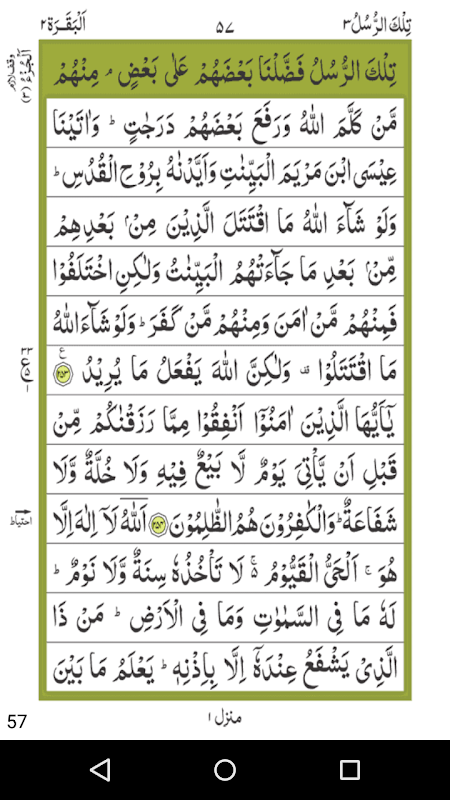 تِلْكَ الرُّسُلُ ٣ ٥٧ اَلْبَقَرَة ٢
تِلْكَ الرُّسُلُ فَضَّلْنَا بَعْضَهُمْ عَلٰى بَعْضٍ ۘ مِنْهُمْ
اَلْجُزْءُ (٣)
وقف لازم
مَّنْ كَلَّمَ اللّٰهُ وَرَفَعَ بَعْضَهُمْ دَرَجٰتٍ ؕ وَاٰتَيْنَا
عِيْسَى ابْنَ مَرْيَمَ الْبَيِّنٰتِ وَاَيَّدْنٰهُ بِرُوْحِ الْقُدُسِ ؕ
وَلَوْ شَآءَ اللّٰهُ مَا اقْتَتَلَ الَّذِيْنَ مِنْۢ بَعْدِهِمْ
مِّنْۢ بَعْدِ مَا جَآءَتْهُمُ الْبَيِّنٰتُ وَلٰكِنِ اخْتَلَفُوْا
فَمِنْهُمْ مَّنْ اٰمَنَ وَمِنْهُمْ مَّنْ كَفَرَ ؕ وَلَوْ شَآءَ اللّٰهُ
مَا اقْتَتَلُوْا ۫ وَلٰكِنَّ اللّٰهَ يَفْعَلُ مَا يُرِيْدُ ۧ ﴿٢٥٣﴾
يٰۤاَيُّهَا الَّذِيْنَ اٰمَنُوْۤا اَنْفِقُوْا مِمَّا رَزَقْنٰكُمْ مِّنْ
قَبْلِ اَنْ يَّاْتِيَ يَوْمٌ لَّا بَيْعٌ فِيْهِ وَلَا خُلَّةٌ وَّلَا
شَفَاعَةٌ ؕ وَالْكٰفِرُوْنَ هُمُ الظّٰلِمُوْنَ ﴿٢٥٤﴾ اَللّٰهُ لَاۤ اِلٰهَ اِلَّا
احتياط
هُوَ ۚ اَلْحَيُّ الْقَيُّوْمُ ۚ۬ لَا تَاْخُذُهٗ سِنَةٌ وَّلَا نَوْمٌ ؕ
لَهٗ مَا فِي السَّمٰوٰتِ وَمَا فِي الْاَرْضِ ؕ مَنْ ذَا
الَّذِيْ يَشْفَعُ عِنْدَهٗۤ اِلَّا بِاِذْنِهٖ ؕ يَعْلَمُ مَا بَيْنَ
منزل ١
57